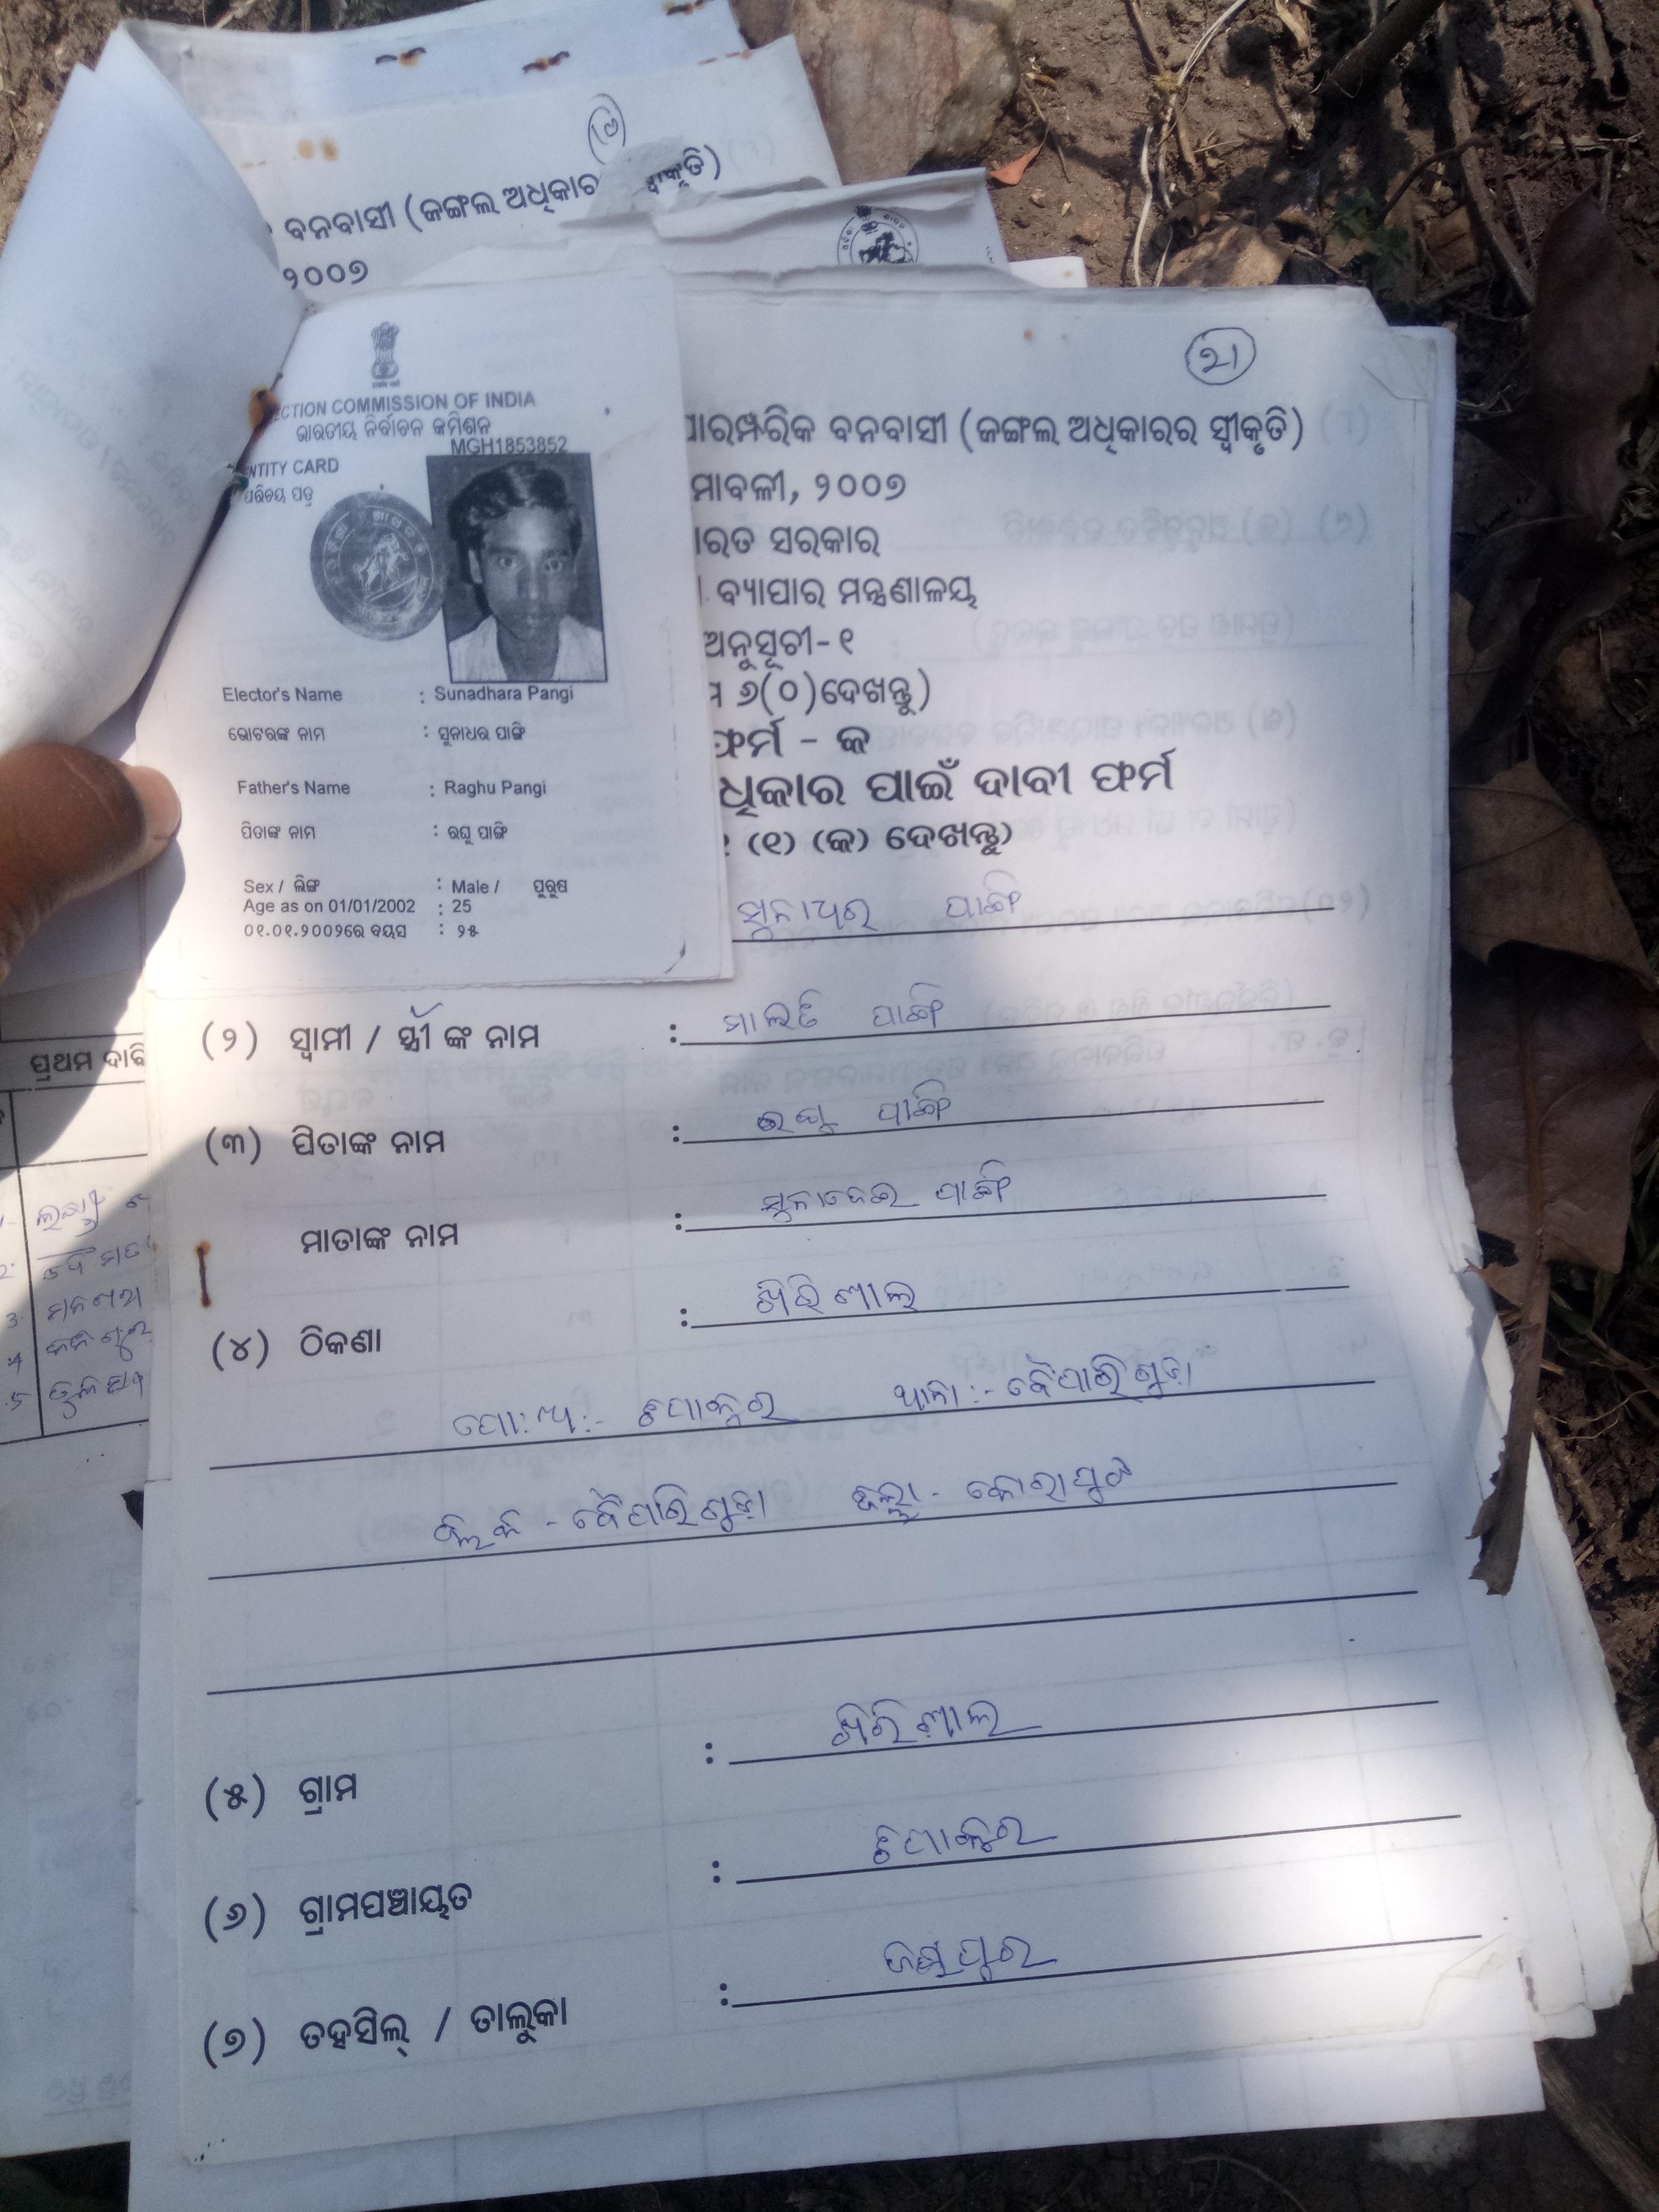 (୨୬)
ବନବାସୀ (ଜଙ୍ଗଲ ଅଧିକାର ସ୍ୱୀକୃତି)
୨୦୦୭
ECTION COMMISSION OF INDIA
ଭାରତୀୟ ନିର୍ବାଚନ କମିଶନ
MGH1853852
NTITY CARD
ପରିଚୟ ପତ୍ର
Elector's Name : Sunadhara Pangi
ଭୋଟରଙ୍କ ନାମ : ସୁନାଧର ପାଙ୍ଗି
Father's Name : Raghu Pangi
ପିତାଙ୍କ ନାମ : ରଘୁ ପାଙ୍ଗି
Sex / ଲିଙ୍ଗ : Male / ପୁରୁଷ
Age as on 01/01/2002 : 25
୦୧.୦୧.୨୦୦୨ରେ ବୟସ : ୨୫
21
ପାରମ୍ପରିକ ବନବାସୀ (ଜଙ୍ଗଲ ଅଧିକାରର ସ୍ୱୀକୃତି)
ମାବଳୀ, ୨୦୦୭
ାରତ ସରକାର
ବ୍ୟାପାର ମନ୍ତ୍ରଣାଳୟ
ଅନୁସୂଚୀ-୧
୬(୦)ଦେଖନ୍ତୁ)
ଫର୍ମ - କ
ଧିକାର ପାଇଁ ଦାବୀ ଫର୍ମ
(୧) (କ) ଦେଖନ୍ତୁ)
ସୁନାଧର ପାଙ୍ଗି
(୨) ସ୍ୱାମୀ / ସ୍ତ୍ରୀ ଙ୍କ ନାମ : ମାଲତି ପାଙ୍ଗି
(୩) ପିତାଙ୍କ ନାମ : ରଘୁ ପାଙ୍ଗି
ମାତାଙ୍କ ନାମ : ସୁନାଦେଇ ପାଙ୍ଗି
(୪) ଠିକଣା : ଖିରିଣାଲ
ପୋ:ଅ:- ଟିପାକୁର ଥାନା:- ବୈପାରିଗୁଡ଼ା
ବ୍ଲକ - ବୈପାରିଗୁଡ଼ା ଜିଲ୍ଲା - କୋରାପୁଟ
(୫) ଗ୍ରାମ : ଖିରିଣାଲ
(୬) ଗ୍ରାମପଞ୍ଚାୟତ : ଟିପାକୁର
(୭) ତହସିଲ୍ / ତାଲୁକା : ଜୟପୁର
ପ୍ରଥମ ଦାବି